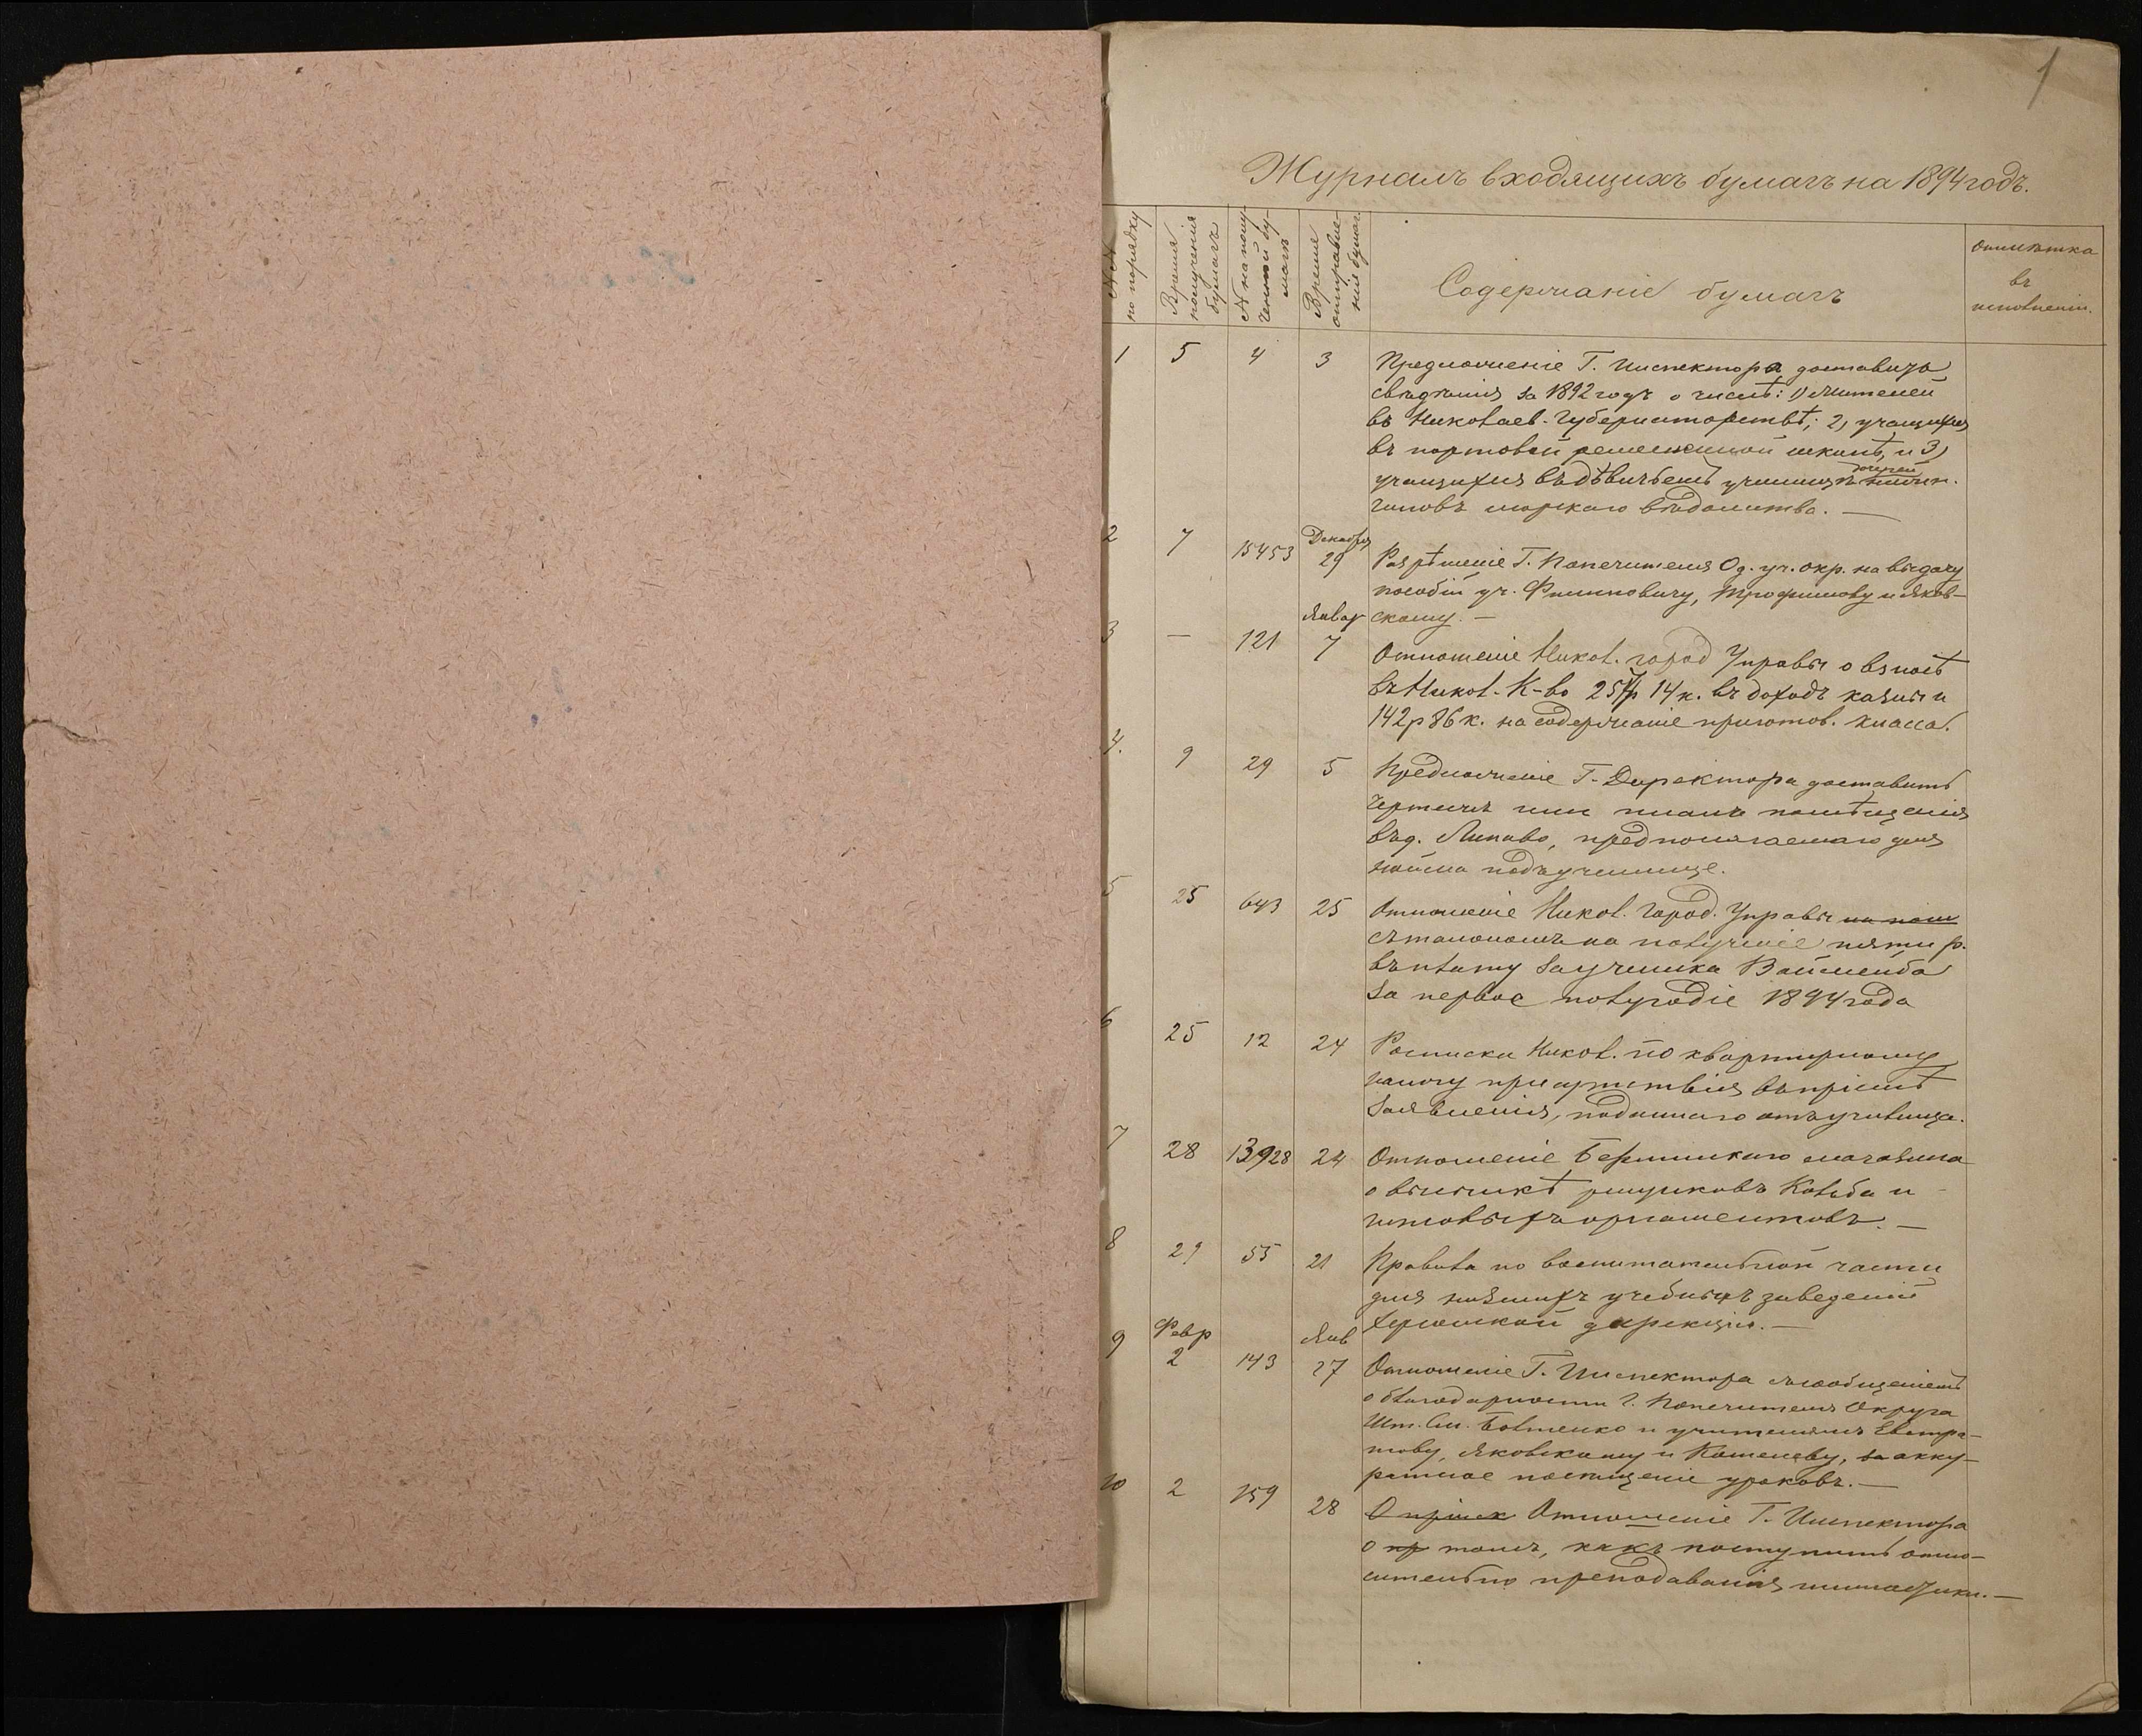 1
Журналъ входящихъ бумагъ на 1894 годъ.
№№ по порядку
Время полученія бумагъ
№ на полученной бумагѣ
Время отправленія бумаг.
Содержаніе бумагъ
Отмѣтка
въ
исполненіи.
1 5 4 3 Предложеніе Г. Инспектора доставить
свѣдѣнія за 1892 годъ о числѣ: 1) жителей
въ Николаев. Губернаторствѣ; 2) учащихся
въ портовой ремесленной школѣ, и 3)
дочерей
учащихся въ дѣвичьемъ училищѣ нижн.
чиновъ морского вѣдомства. —
2 7 15453 Декабря 29 Разрѣшеніе Г. Попечителя Од. уч. окр. на выдачу
пособій уч. Филиповичу, Трофимову и Яков-
Январ скому. —
3 — 121 7 Отношеніе Никол. город Управы о взносѣ
въ Никол. К-во 257р 14 к. въ доходъ казны и
142р 86 к. на содержаніе приготов. класса.
4. 9 29 5 Предложеніе Г. Директора доставить
чертежъ или планъ помѣщенія
въ д. Липаво, предполагаемаго для
найма подъ училище.
5 25 643 25 Отношеніе Никол. Город. Управы
съ талономъ на полученіе пяти р.
въ плату за ученика Вайсменба
за первое полугодіе 1894 года
6 25 12 24 Росписка Никол. по квартирному
налогу присутствія въ пріемѣ
заявленія, поданнаго отъ училища.
7 28 13928 24 Отношеніе Берлинскаго магазина
о высылкѣ рисунковъ Кольба и
гипсовыхъ орнаментовъ. —
8 29 55 21 Правила по воспитательной части
для низшихъ учебныхъ заведеній
Херсонской дирекціи. —
9 Февр 2 143 Янв 27 Отношеніе Г. Инспектора съ сообщеніемъ
о благодарности г. Попечителя Округа
Шт. См. Бовтенко и учителямъ Евстра-
тову, Яковскому и Кошелеву, за акку-
ратное посѣщеніе уроковъ. —
10 2 159 28 Отношеніе Г. Инспектора
о томъ, какъ поступить отно-
сительно преподаванія гимнастики. —